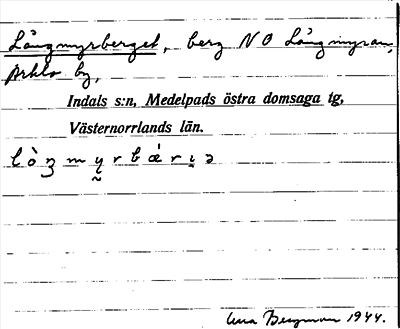 Långmyrberget, berg NO Långmyran,
Arklo by,
Indals s:n, Medelpads östra domsaga tg,
Västernorrlands län.
Bergman 1944.